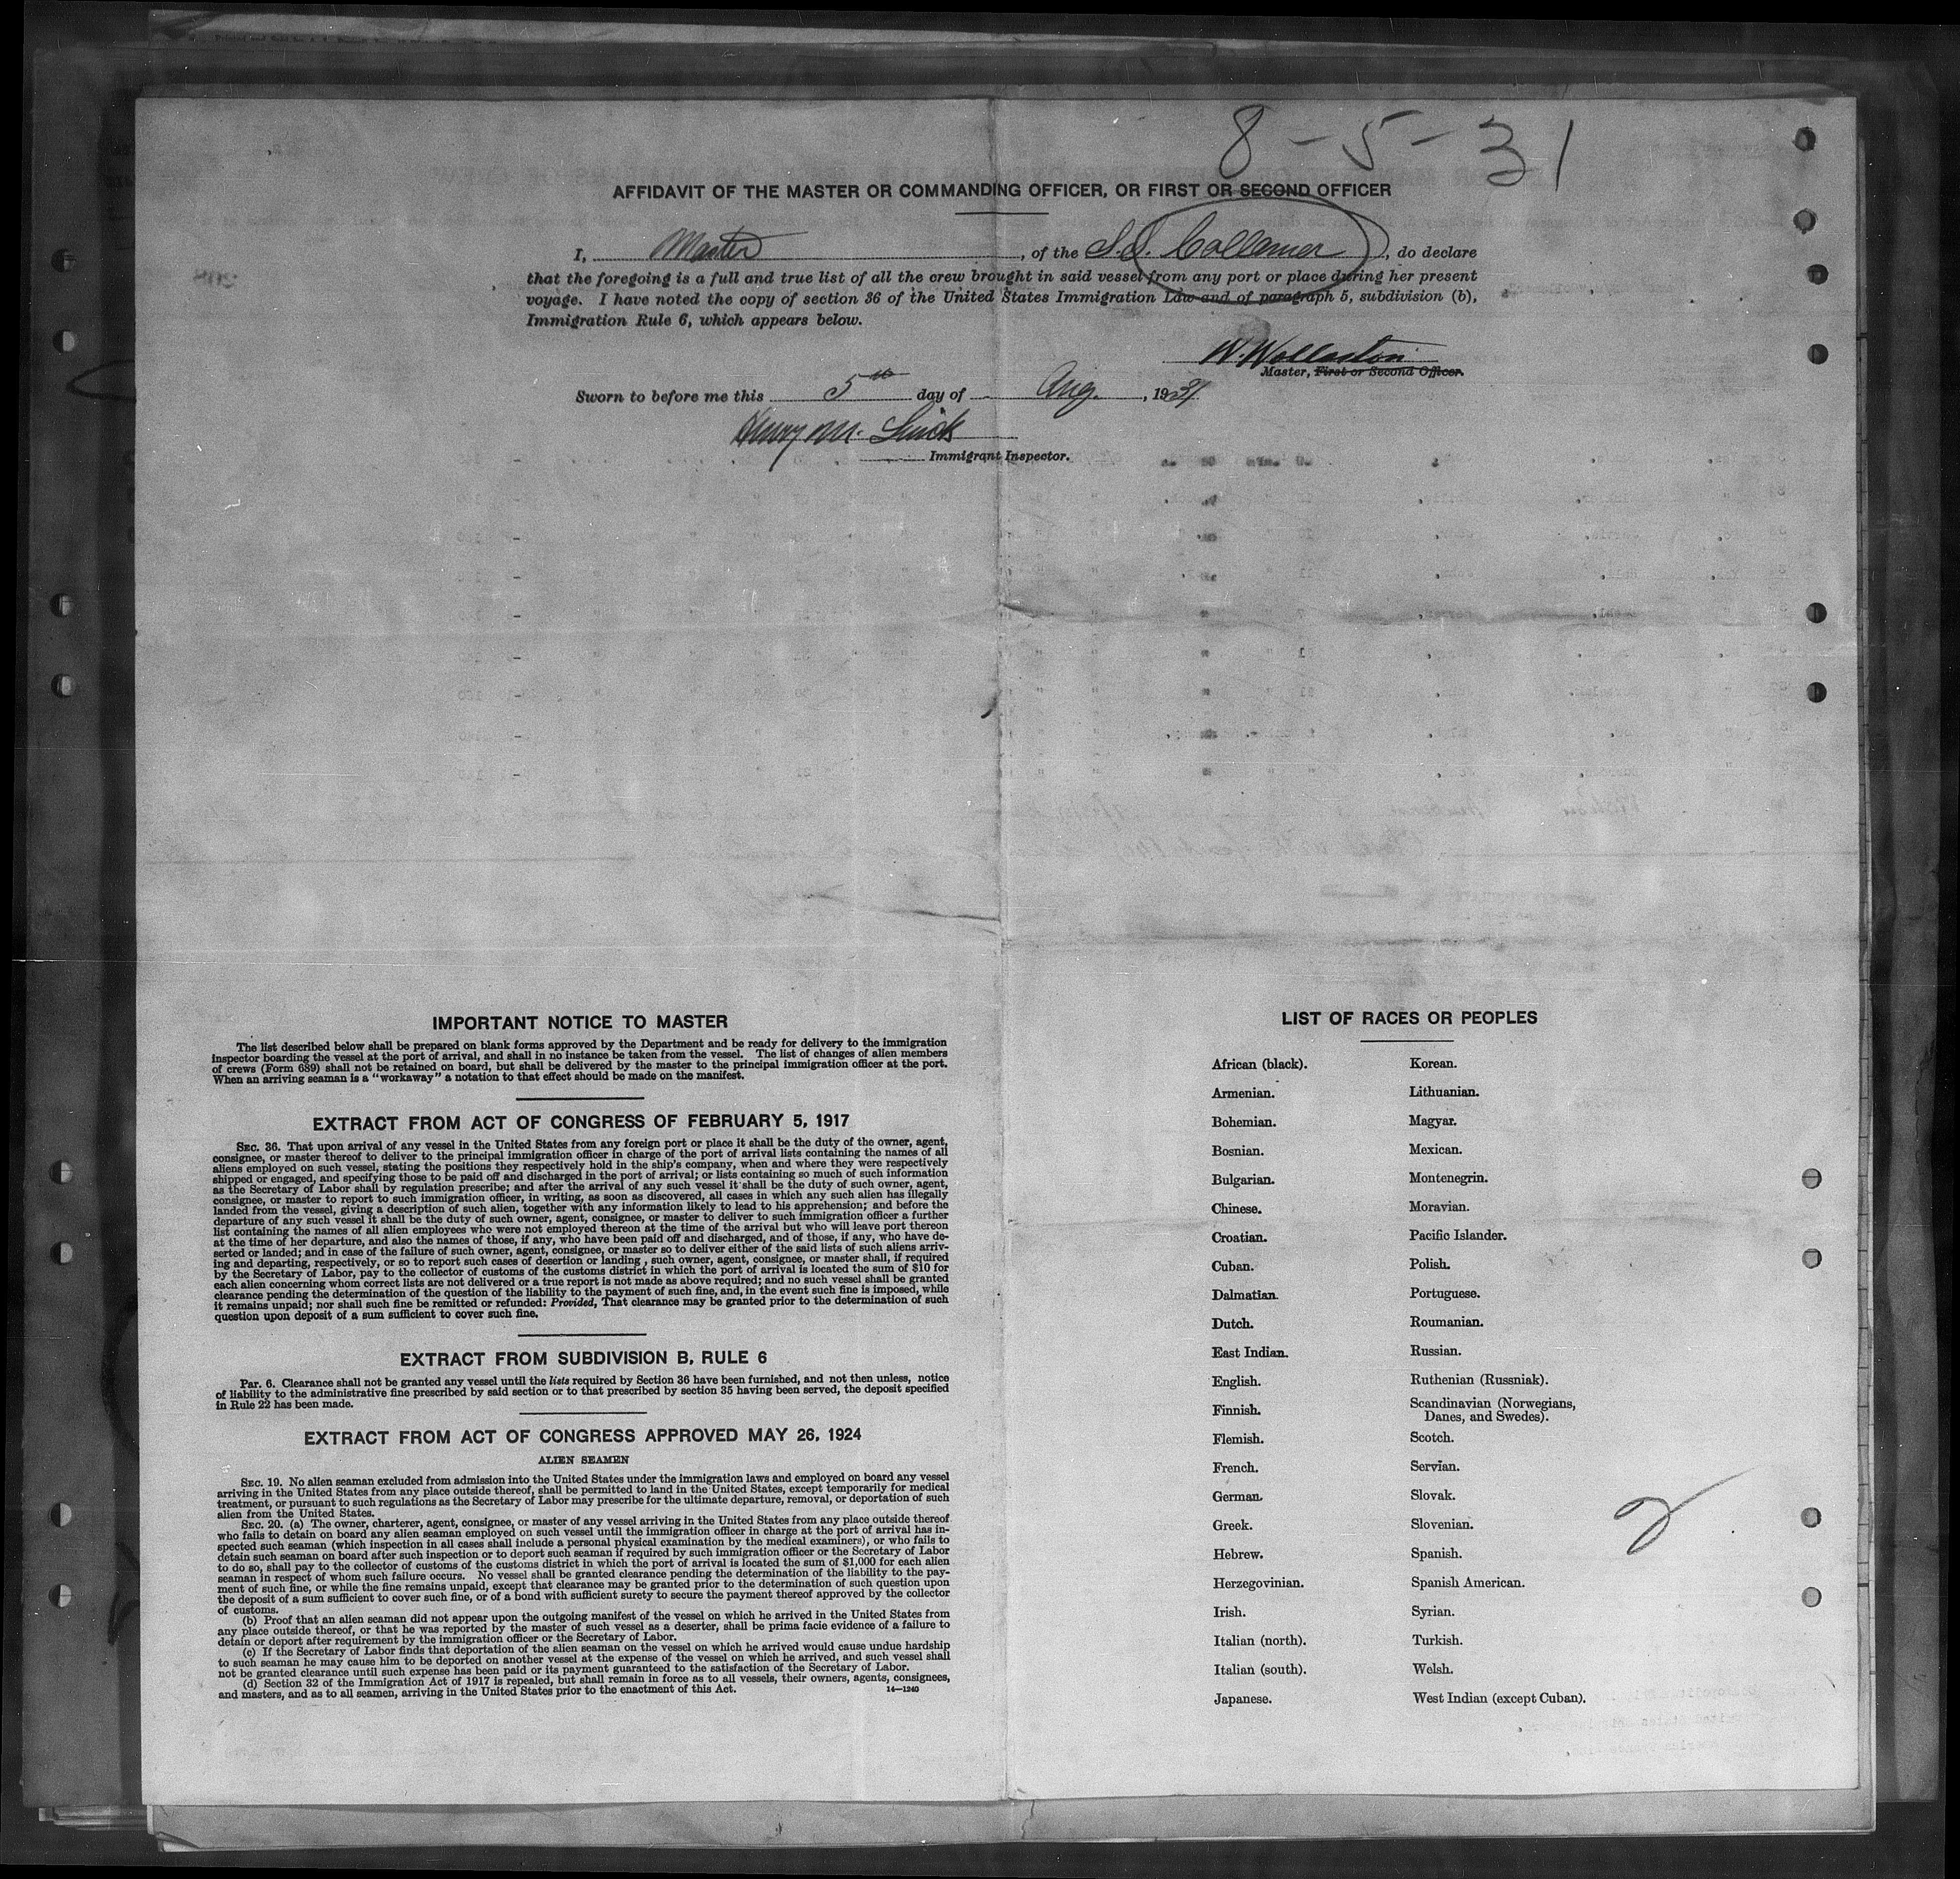 8-5-31
AFFIDAVIT OF THE MASTER OR COMMANDING OFFICER, OR FIRST OR SECOND OFFICER
I, Master, of the S.S. Collamer, do declare
that the foregoing is a full and true list of all the crew brought in said vessel from any port or place during her present
voyage. I have noted the copy of section 36 of the United States Immigration Law and of paragraph 5, subdivision (b),
Immigration Rule 6, which appears below.
W. Wollaston
Master, First or Second Officer.
Sworn to before me this 5th day of Aug., 1931
Henry M.
Immigrant Inspector.
IMPORTANT NOTICE TO MASTER
The list described below shall be prepared on blank forms approved by the Department and be ready for delivery to the immigration
inspector boarding the vessel at the port of arrival, and shall in no instance be taken from the vessel. The list of changes of alien members
of crews (Form 689) shall not be retained on board, but shall be delivered by the master to the principal immigration officer at the port.
When an arriving seaman is a "workaway" a notation to that effect should be made on the manifest.
EXTRACT FROM ACT OF CONGRESS OF FEBRUARY 5, 1917
SEC. 36. That upon arrival of any vessel in the United States from any foreign port or place it shall be the duty of the owner, agent,
consignee, or master thereof to deliver to the principal immigration officer in charge of the port of arrival lists containing the names of all
aliens employed on such vessel, stating the positions they respectively hold in the ship's company, when and where they were respectively
shipped or engaged, and specifying those to be paid off and discharged in the port of arrival; or lists containing so much of such information
as the Secretary of Labor shall by regulation prescribe; and after the arrival of any such vessel it shall be the duty of such owner, agent,
consignee, or master to report to such immigration officer, in writing, as soon as discovered, all cases in which any such alien has illegally
landed from the vessel, giving a description of such alien, together with any information likely to lead to his apprehension; and before the
departure of any such vessel it shall be the duty of such owner, agent, consignee, or master to deliver to such immigration officer a further
list containing the names of all alien employees who were not employed thereon at the time of the arrival but who will leave port thereon
at the time of her departure, and also the names of those, if any, who have been paid off and discharged, and of those, if any, who have de-
serted or landed; and in case of the failure of such owner, agent, consignee, or master so to deliver either of the said lists of such aliens arriv-
ing and departing, respectively, or so to report such cases of desertion or landing , such owner, agent, consignee, or master shall, if required
by the Secretary of Labor, pay to the collector of customs of the customs district in which the port of arrival is located the sum of $10 for
each alien concerning whom correct lists are not delivered or a true report is not made as above required; and no such vessel shall be granted
clearance pending the determination of the question of the liability to the payment of such fine, and, in the event such fine is imposed, while
it remains unpaid; nor shall such fine be remitted or refunded: Provided, That clearance may be granted prior to the determination of such
question upon deposit of a sum sufficient to cover such fine.
EXTRACT FROM SUBDIVISION B, RULE 6
Par. 6. Clearance shall not be granted any vessel until the lists required by Section 36 have been furnished, and not then unless, notice
of liability to the administrative fine prescribed by said section or to that prescribed by section 35 having been served, the deposit specified
in Rule 22 has been made.
EXTRACT FROM ACT OF CONGRESS APPROVED MAY 26, 1924
ALIEN SEAMEN
SEC. 19. No alien seaman excluded from admission into the United States under the immigration laws and employed on board any vessel
arriving in the United States from any place outside thereof, shall be permitted to land in the United States, except temporarily for medical
treatment, or pursuant to such regulations as the Secretary of Labor may prescribe for the ultimate departure, removal, or deportation of such
alien from the United States.
SEC. 20. (a) The owner, charterer, agent, consignee, or master of any vessel arriving in the United States from any place outside thereof
who fails to detain on board any alien seaman employed on such vessel until the immigration officer in charge at the port of arrival has in-
spected such seaman (which inspection in all cases shall include a personal physical examination by the medical examiners), or who fails to
detain such seaman on board after such inspection or to deport such seaman if required by such immigration officer or the Secretary of Labor
to do so, shall pay to the collector of customs of the customs district in which the port of arrival is located the sum of $1,000 for each alien
seaman in respect of whom such failure occurs. No vessel shall be granted clearance pending the determination of the liability to the pay-
ment of such fine, or while the fine remains unpaid, except that clearance may be granted prior to the determination of such question upon
the deposit of a sum sufficient to cover such fine, or of a bond with sufficient surety to secure the payment thereof approved by the collector
of customs.
(b) Proof that an alien seaman did not appear upon the outgoing manifest of the vessel on which he arrived in the United States from
any place outside thereof, or that he was reported by the master of such vessel as a deserter, shall be prima facie evidence of a failure to
detain or deport after requirement by the immigration officer or the Secretary of Labor.
(c) If the Secretary of Labor finds that deportation of the alien seaman on the vessel on which he arrived would cause undue hardship
to such seaman he may cause him to be deported on another vessel at the expense of the vessel on which he arrived, and such vessel shall
not be granted clearance until such expense has been paid or its payment guaranteed to the satisfaction of the Secretary of Labor.
(d) Section 32 of the Immigration Act of 1917 is repealed, but shall remain in force as to all vessels, their owners, agents, consignees,
and masters, and as to all seamen, arriving in the United States prior to the enactment of this Act.
14—1240
LIST OF RACES OR PEOPLES
African (black).
Armenian.
Bohemian.
Bosnian.
Bulgarian.
Chinese.
Croatian.
Cuban.
Dalmatian.
Dutch.
East Indian.
English.
Finnish.
Flemish.
French.
German.
Greek.
Hebrew.
Herzegovinian.
Irish.
Italian (north).
Italian (south).
Japanese.
Korean.
Lithuanian.
Magyar.
Mexican.
Montenegrin.
Moravian.
Pacific Islander.
Polish.
Portuguese.
Roumanian.
Russian.
Ruthenian (Russniak).
Scandinavian (Norwegians,
Danes, and Swedes).
Scotch.
Servian.
Slovak.
Slovenian.
Spanish.
Spanish American.
Syrian.
Turkish.
Welsh.
West Indian (except Cuban).
2